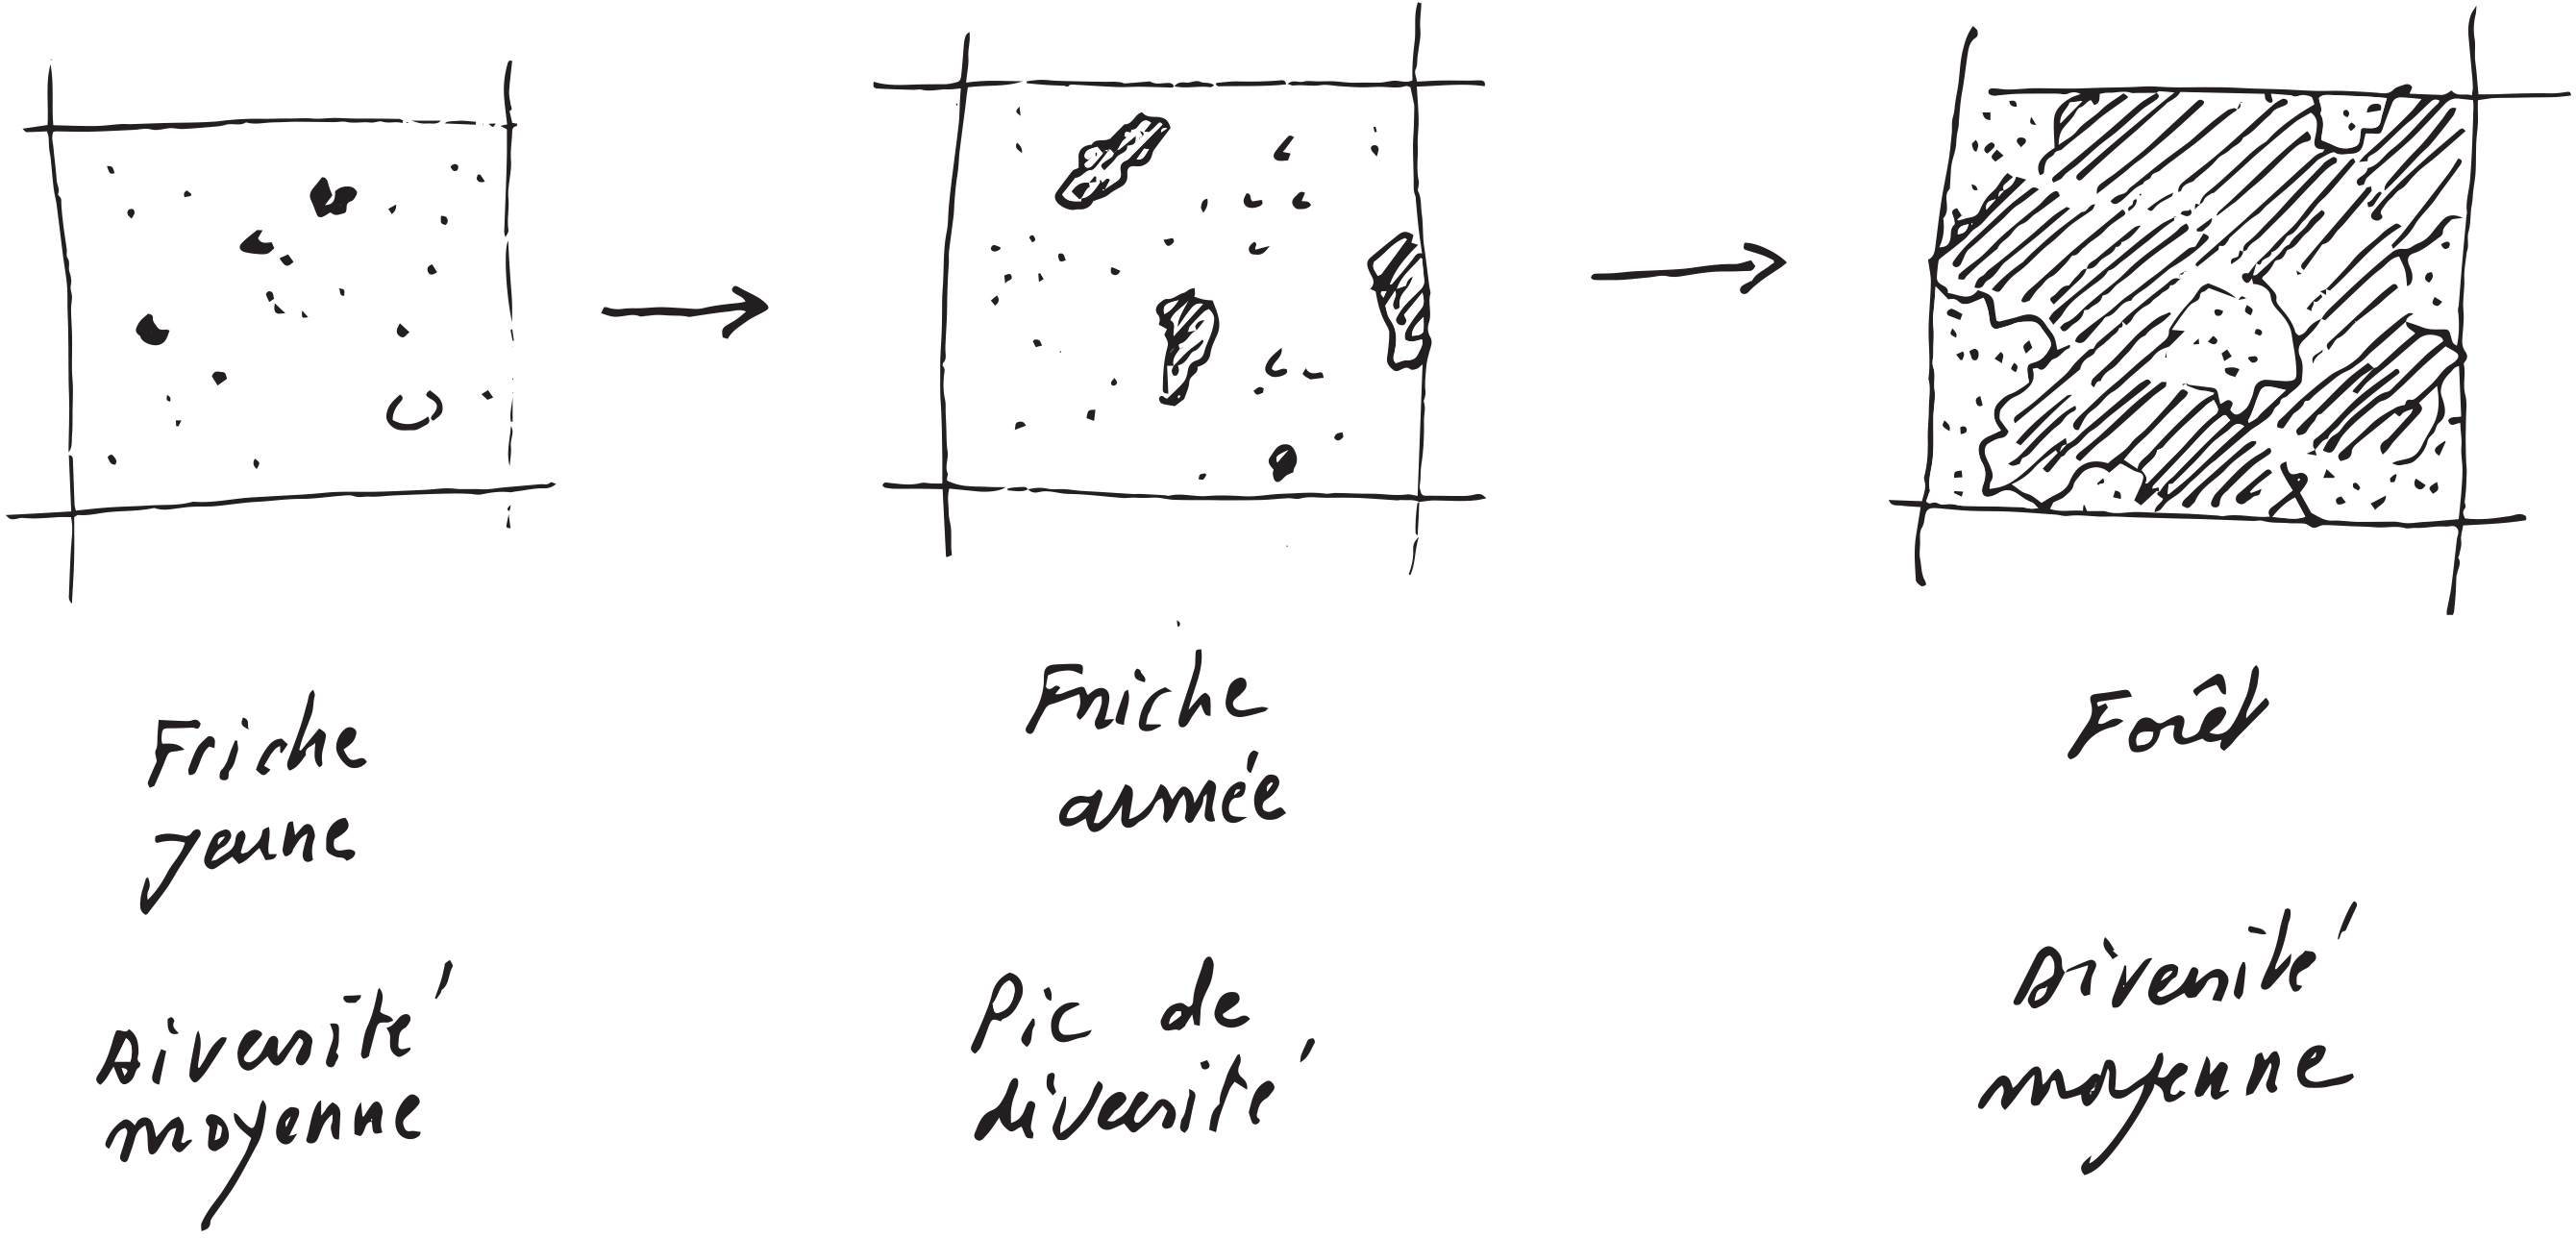 Friche
jeune
Diversité
moyenne
Friche
armée
Pic de
diversité
Forêt
Diversité
moyenne